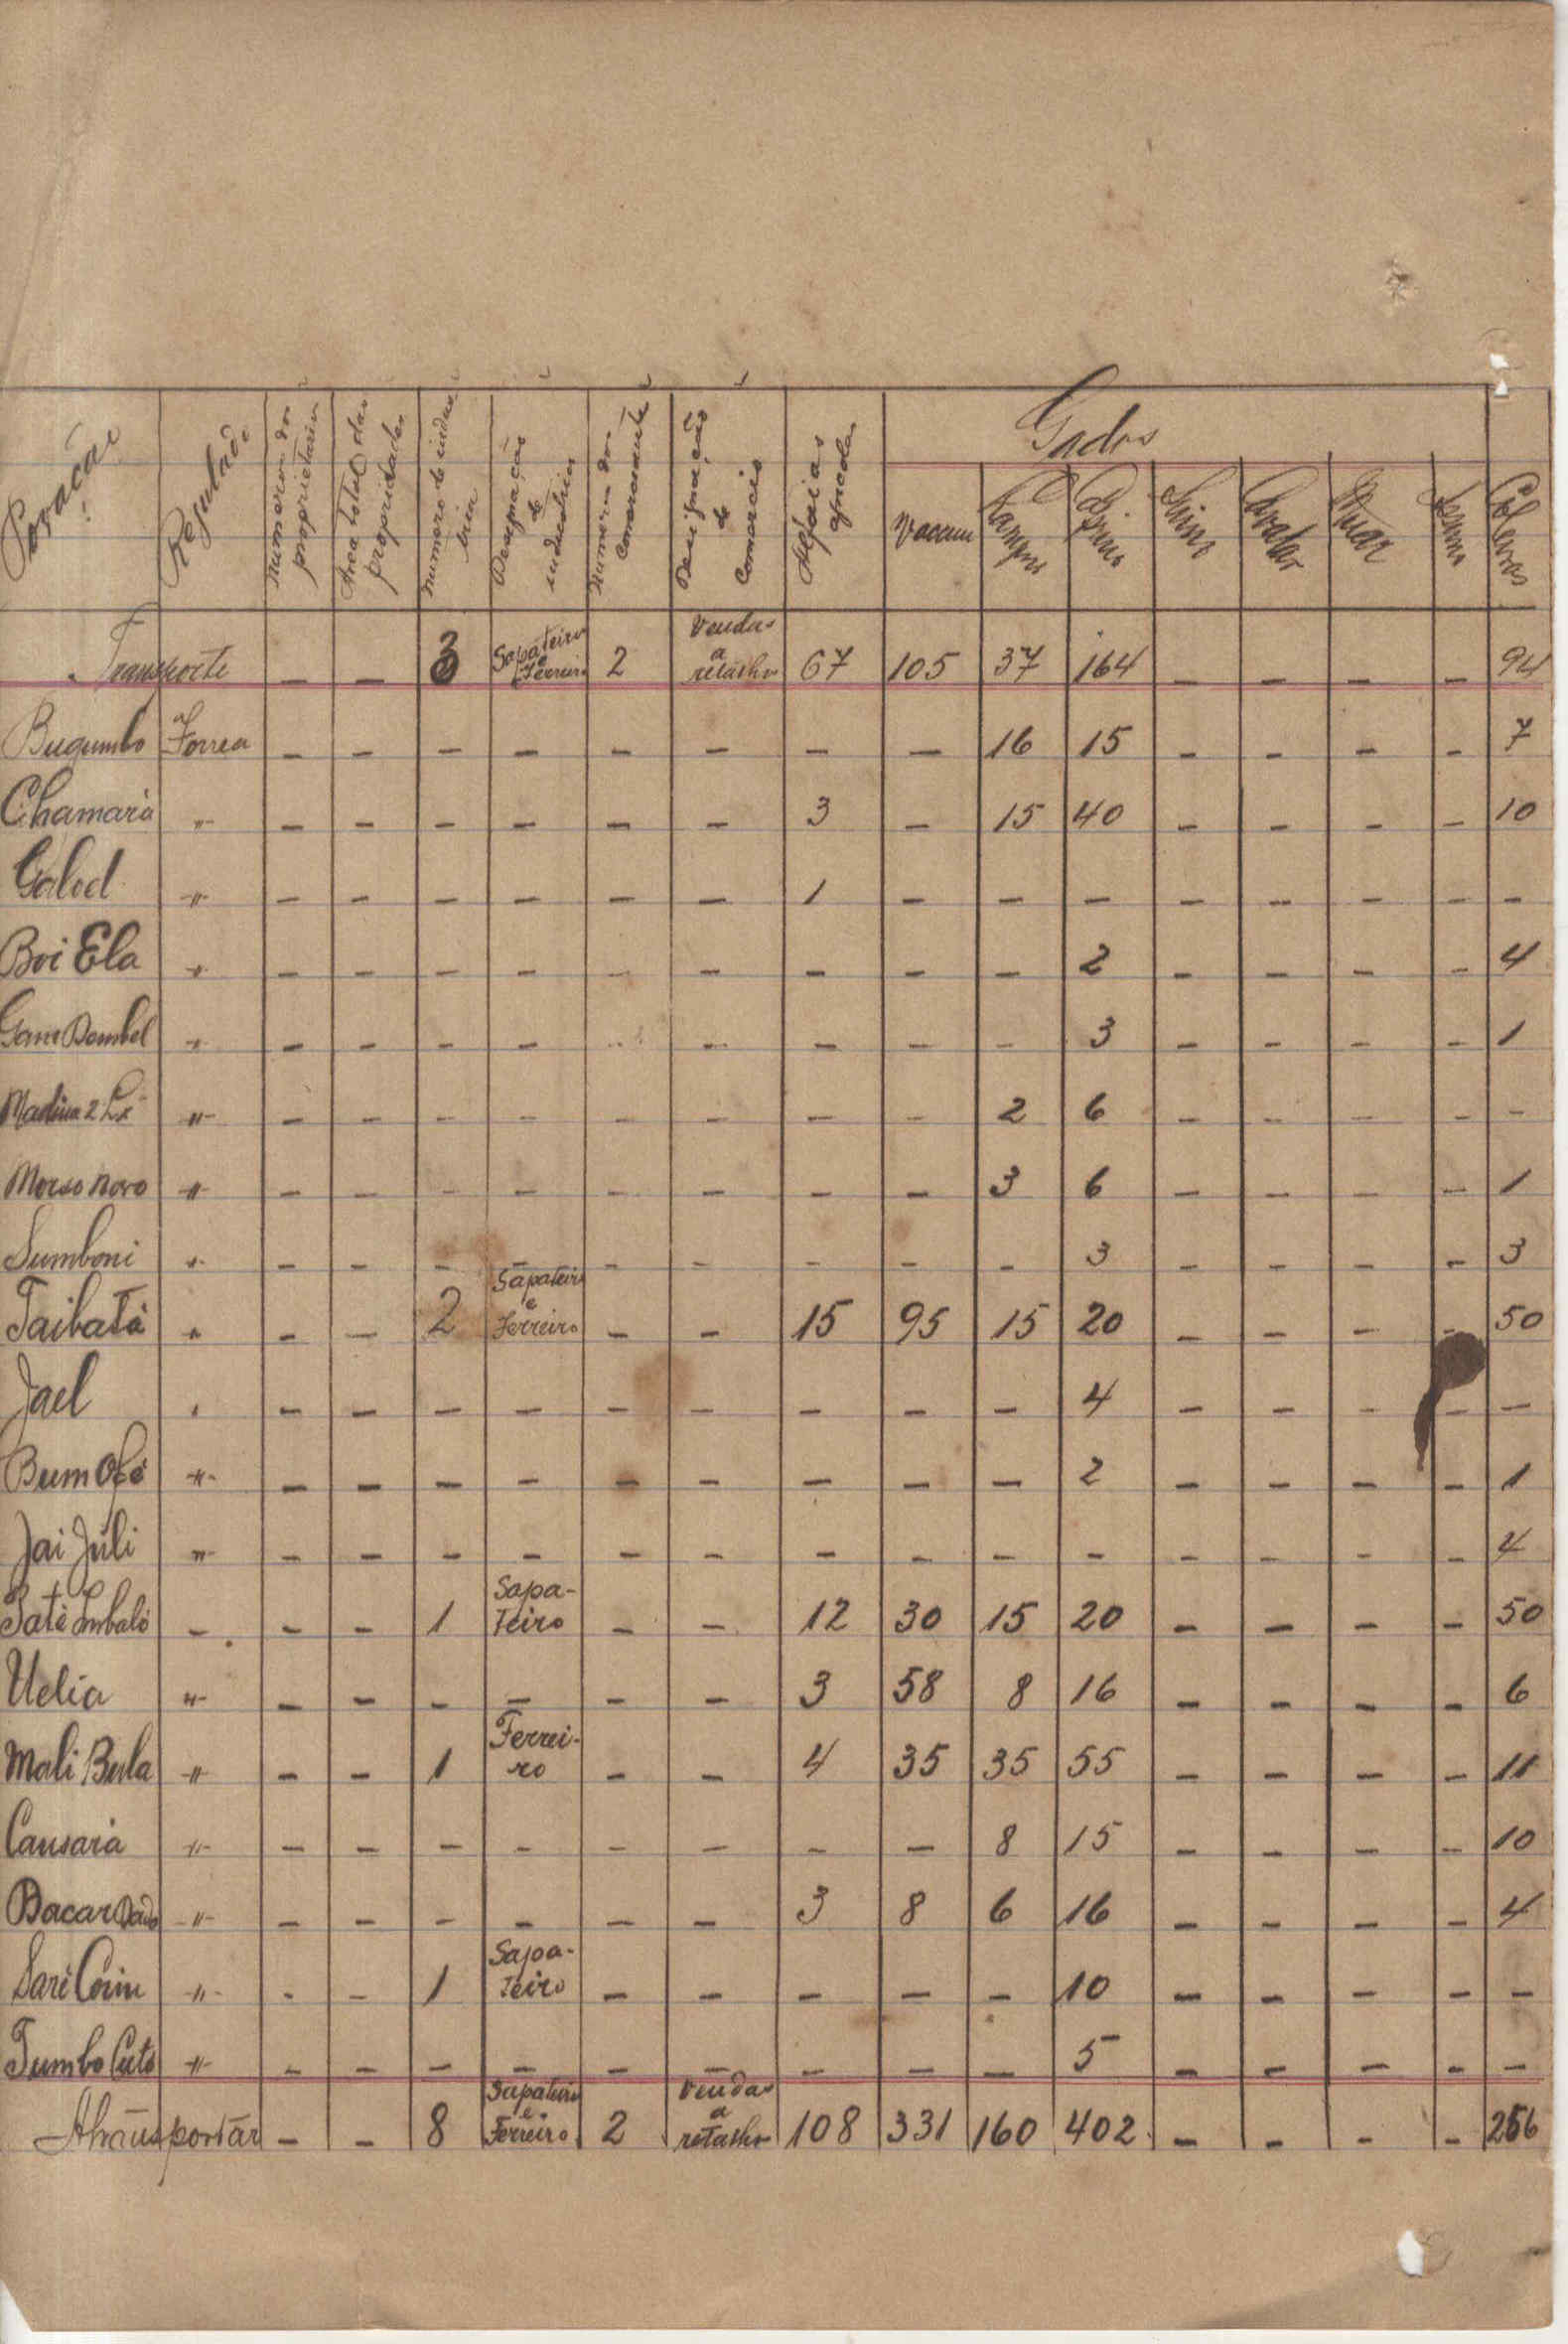 Povoação Regulado Numeros dos proprietarios Area total das propriedades Numero de industria Designação de industrias Numeros dos comerciantes Designação de Comercio Alfaias agricolas Gados Colmeias
Vacum Lanigero Caprino Suino Cavalar Muar
Transporte — — 3 Sapateiro e Ferreiro 2 Vendas a retalho 67 105 37 164 — — — — 94
Bugumbo Forrea — — — — — — — — 16 15 — — — — 7
Chamará " — — — — — — 3 — 15 40 — — — — 10
Galod " — — — — — — 1 — — — — — — — —
Boi Ela " — — — — — — — — — 2 — — — — 4
Gam Dembel " — — — — — — — — — 3 — — — — 1
Madina 2 " — — — — — — — — 2 6 — — — — —
Morso novo " — — — — — — — — 3 6 — — — — 1
Sumboni " — — — — — — — — — 3 — — — — 3
Taibatá " — — 2 Sapateiro e Ferreiro — — 15 95 15 20 — — — — 50
Jael " — — — — — — — — — 4 — — — — —
Bum Ofé " — — — — — — — — — 2 — — — — 1
Jai Juli " — — — — — — — — — — — — — — 4
Paté Embaló — — — 1 Sapa-teiro — — 12 30 15 20 — — — — 50
Uelia " — — — — — — 3 58 8 16 — — — — 6
Mali Bula " — — 1 Ferrei-ro — — 4 35 35 55 — — — — 11
Causará " — — — — — — — — 8 15 — — — — 10
Bacar Dado " — — — — — — 3 8 6 16 — — — — 4
Saré Coriu " — — 1 Sapa-teiro — — — — — 10 — — — — —
Tumbo Cuto " — — — — — — — — — 5 — — — — —
A transportar — — 8 Sapateiro e Ferreiro 2 Vendas a retalho 108 331 160 402 — — — — 256